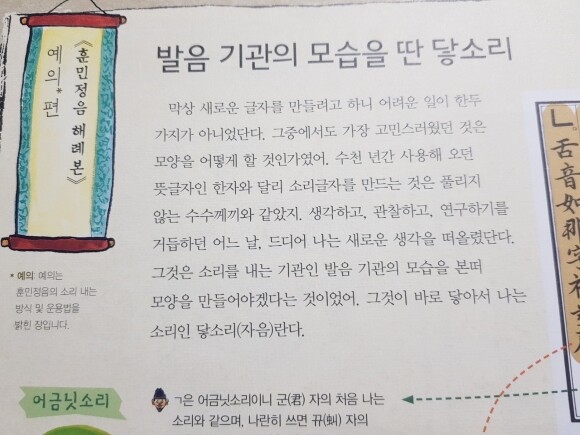 《훈민정음 해례본》
예의* 편
* 예의: 예의는
훈민정음의 소리 내는
방식 및 운용법을
밝힌 장입니다.
발음 기관의 모습을 딴 닿소리
막상 새로운 글자를 만들려고 하니 어려운 일이 한두
가지가 아니었단다. 그중에서도 가장 고민스러웠던 것은
모양을 어떻게 할 것인가였어. 수천 년간 사용해 오던
뜻글자인 한자와 달리 소리글자를 만드는 것은 풀리지
않는 수수께끼와 같았지. 생각하고, 관찰하고, 연구하기를
거듭하던 어느 날, 드디어 나는 새로운 생각을 떠올렸단다.
그것은 소리를 내는 기관인 발음 기관의 모습을 본떠
모양을 만들어야겠다는 것이었어. 그것이 바로 닿아서 나는
소리인 닿소리(자음)란다.
어금닛소리
ㄱ은 어금닛소리이니 군(君) 자의 처음 나는
소리와 같으며, 나란히 쓰면 뀨(虯) 자의
ㄴ
舌音如那字初